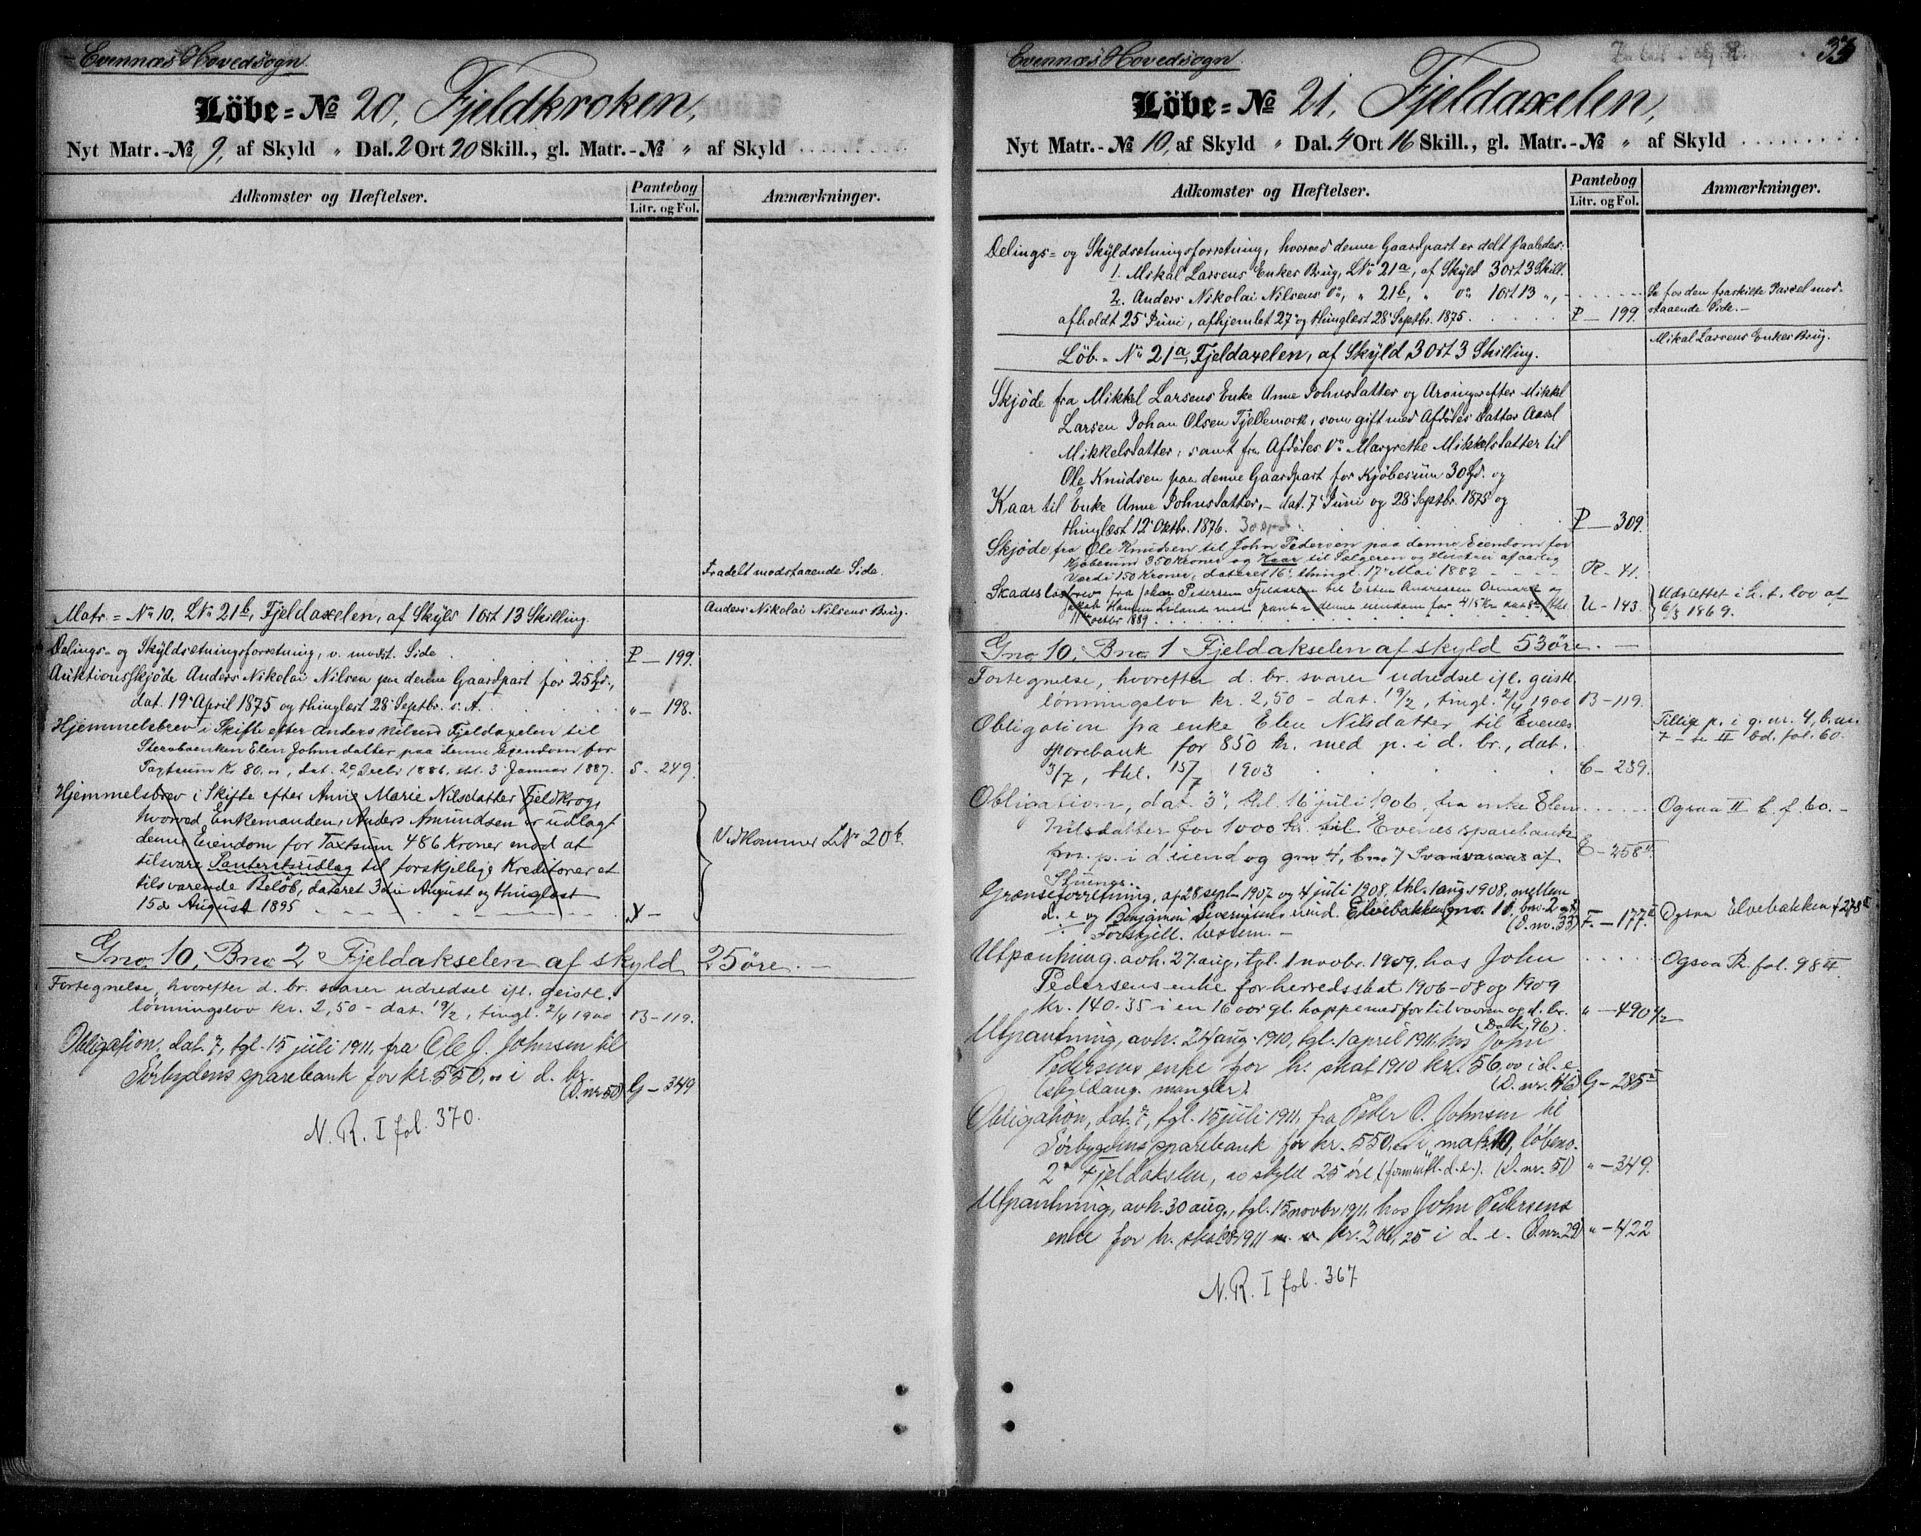 Evennæs Hovedsogn
Löbe=No 20, Fjeldkroken,
Nyt Matr.-No 9, af Skyld " Dal. 2 Ort 20 Skill., gl. Matr.-No " af Skyld
Adkomster og Hæftelser.
Pantebog
Litr. og Fol.
Anmærkninger.
Fradelt modstaaende Side.
Matr = No 10, LNo 21b, Fjeldaxelen, af Skyld 1 ort 13 Skilling.
Anders Nikolai Nilsens Brug.
Delings= og Skyldsetningsforretning, v. modst. Side. P — 199.
AuktionsSkjøde Anders Nikolai Nilsen paa denne Gaardpart for 25
dat. 19 April 1875 og thinglæst 28 Septbr. s. A. " — 198.
Hjemmelsbrev i Skifte efter Anders Nilsens Fjeldaxelen til
Stervboenken Elen Johnsdatter paa denne Eiendom for
Taxtsum Kr 80.", dat. 29 Decbr 1886, thl. 3 Januar 1887. S- 249.
Hjemmelsbrev i Skifte efter Anne Marie Nilsdatter Fjeldkrog,
hvorved Enkemanden, Anders Amundsen er udlagt
denne Eiendom for Taxtsum 486 Kroner mod at
tilsvare Panteretsudlæg til forskjellige Kreditorer et
tilsvarende Beløb, dateret 3die August og thinglæst
15de August 1895
Vedkommer LNo 20b.
Gno. 10, Bno 2 Fjeldakselen af skyld 25 øre.
Fortegnelse, hvorefter d. br. svarer udredsel ifl. geistl.
lønningslov kr. 2,50 - dat. 19/2, tingl. 2/4 1900 B-119.
Obligation, dat. 7, tgl. 15 juli 1911, fra Ole J. Johnsen til
Sørbydens sparebank for kr. 550," i d. br.
(D. nr. 50) G — 349
N. R. I fol. 370.
Evennæs Hovedsogn
Löbe=No 21, Fjeldaxelen,
Nyt Matr.-No 10, af Skyld " Dal. 4 Ort 16 Skill., gl. Matr.-No " af Skyld
Adkomster og Hæftelser.
Pantebog
Litr. og Fol.
Anmærkninger.
Delings= og Skyldsetningsforretning, hvorved denne Gaardpart er delt saaledes:
1. Mikal Larsens Enkes Brug, LNo 21a, af Skyld 3 ort 3 Skill.
2. Anders Nikolai Nilsens do, " 21b, " do 1 ort 13 ",
afholdt 25 Juni, afhjemlet 27 og thinglæst 28 Septbr. 1875. P — 199.
Se for den fraskilte Parcel mod-
staaende Side.
Løb.-No 21a, Fjeldaxelen, af Skyld 3 ort 3 Skilling.
Mikal Larsens Enkes Brug.
Skjøde fra Mikkel Larsens Enke Anne Johnsdatter og Arvinger efter Mikkel
Larsen Johan Olsen Fjellemork, som gift med Afdødes Datter Axel
Mikkelsdatter, samt fra Afdødes do Margrethe Mikkelsdatter til
Ole Knudsen paa denne Gaardpart for Kjøbesum 30 og
Kaar til Enke Anne Johnsdatter,- dat. 7 Juni og 28 Septbr. 1875 og
thinglæst 12 Oktbr. 1876. P — 309.
Skjøde fra Ole Knudsen til John Pedersen paa denne Eiendom for
Kjøbesum 350 Kroner og Kaar til Sælgeren og Hustru af aarlig
Værdi 150 Kroner, dateret 16, thingl. 17 Mai 1882 R - 41.
Skadesløsbrev fra John Pedersen Fjeldaxelen til Esten Andreassen
Jakob Hansen Liland med pant i denne eiendom for 415 Kr
11 octbr 1889 U - 143.
Udslettet i h. t. lov af
6/3 1869.
Gno 10, Bno 1 Fjeldakselen af skyld 53 øre.
Fortegnelse, hvorefter d. br. svarer udredsel ifl. geistl.
lønningslov kr. 2,50 - dat. 19/2, tingl. 2/4 1900 B -119.
Obligation fra enke Elen Nilsdatter til Evenes
sparebank for 850 kr. med p. i d. br., dat.
3/7, thl. 15/7 1903 C- 239.
Tillige p. i g. nr. 4, b. nr.
7 - se II Bd. fol. 60.
Obligation, dat. 3, thl. 16 juli 1906, fra enke Elen
Nilsdatter for 1000 kr. til Evenes sparebank
fm. p. i d. eiend og gno 4, bno 7 Svanvaraas af E - 258
Ogsaa II B. f. 60.
Grænseforretning, af 28 sept. 1907 og 4 juli 1908, thl. 1 aug. 1908, mellem
d. e og Benjamin eiend. Elvebakken gno. 11, bno. 2
Forskjell. bestem. (D. nr. 33) F. - 177
Ogsaa Elvebakken f 278
Utpantning, avh. 27 aug, tgl. 1 novbr. 1909, hos John
Pedersens enke for herredsskat 1906-08 og 1909
kr. 140.35 i en 16 aar gl. hoppe med fortilvaren og d. br. " - 490
(D nr. 96)
Ogsaa fol. 98 II.
Utpantning, avh. 24 aug. 1910, tgl. 1 april 1911, hos John
Pedersens enke for h. skat 1910 kr. 56,00 i d. e.
(skyldang. mangler) (D. nr. 46) G - 285
Obligation, dat. 7, tgl. 15 juli 1911, fra Peder O. Johnsen til
Sørbygdens sparebank for kr. 550," i matr. 10, løbeno.
2 Fjeldakslen, av skyld 25 øre, (D. nr. 51) " - 349.
Utpantning, avh. 30 aug., tgl. 15 novbr 1911, hos John Pedersens
enke for h. skat 1911 kr. 26,25 i d. e. (D. nr. 29) " - 422
N. R. I fol. 367